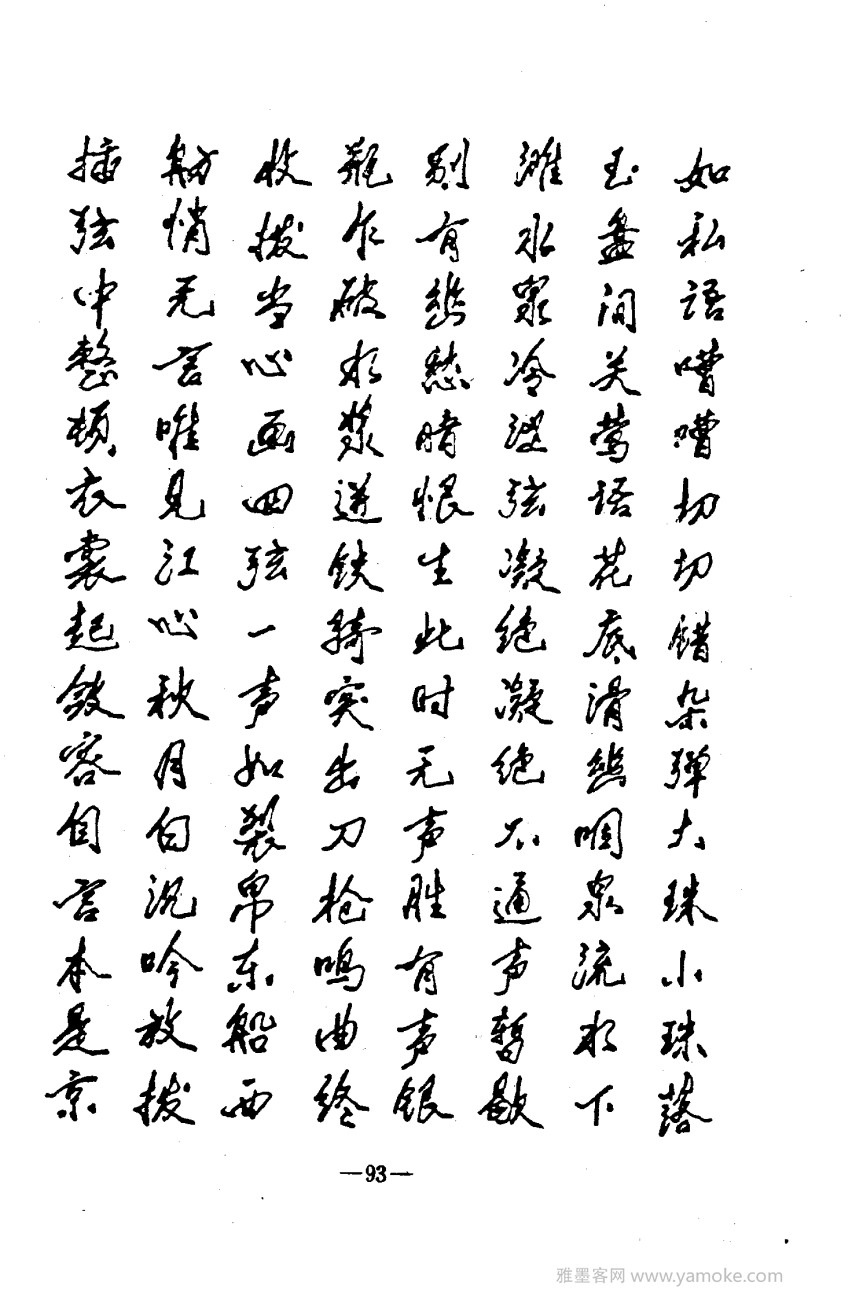 如私语嘈嘈切切错杂弹大珠小珠落
玉盘间关莺语花底滑幽咽泉流水下
滩冰泉冷涩弦凝绝凝绝不通声暂歇
别有幽愁暗恨生此时无声胜有声银
瓶乍破水浆迸铁骑突出刀枪鸣曲终
收拨当心画四弦一声如裂帛东船西
舫悄无言唯见江心秋月白沉吟放拨
插弦中整顿衣裳起敛容自言本是京
—93—
雅墨客网 www.yamoke.com